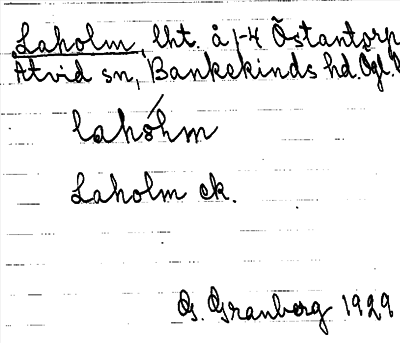 Laholm, lht. å 1-4 Östantorp
Åtvid sn, Bankekinds hd. Ögl.
lahóhm
Laholm ek.
G. Granberg 1929